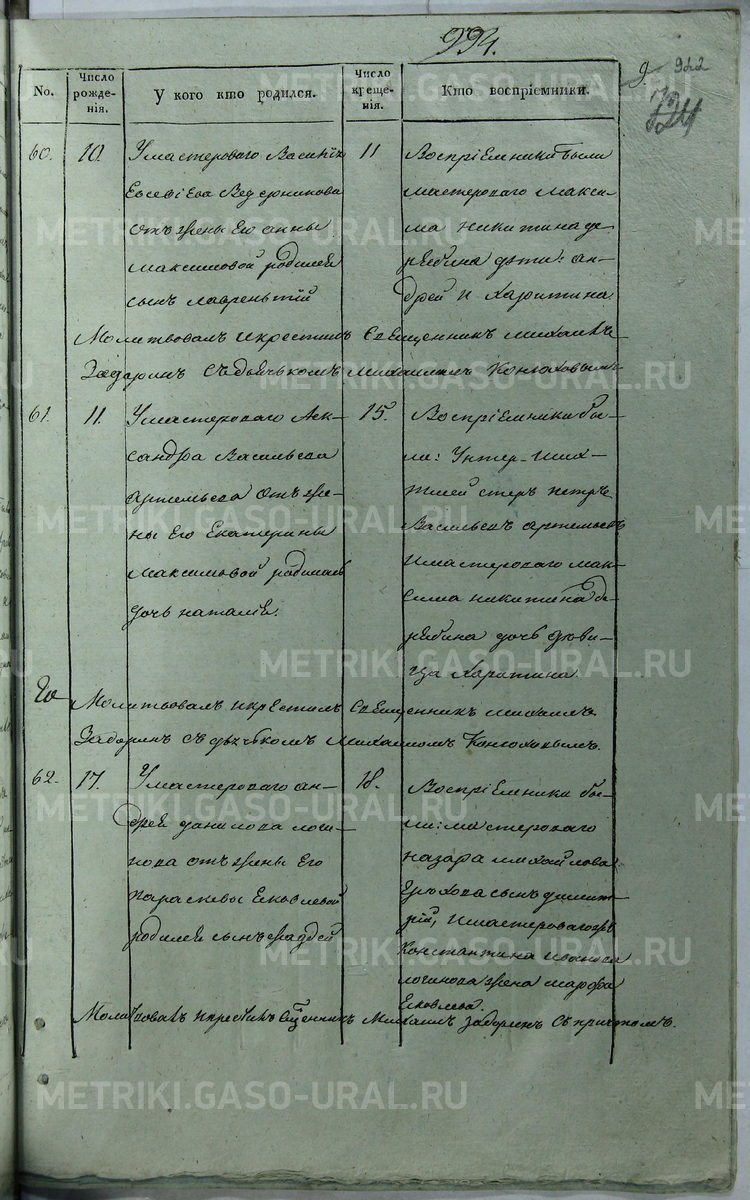 994.
9 922
No.
Число рожденія.
У кого кто родился.
Число крещенія.
Кто воспріемники.
60.
10.
У мастероваго Василія
Евсевіева Ведерникова
отъ жены его анны
максимовой родился
сынъ лаврентій
11
Воспріемники были
мастероваго макси-
ма никитина де-
рябина дѣти: ан-
дрей и харитина
Молитвовалъ и крестилъ Священникъ михаилъ
Задоринъ съ дьячькомъ михаиломъ Конюховымъ
61.
11.
У мастероваго Алек-
сандра Васильева
артемьева отъ же-
ны его Екатерины
максимовой родилась
дочь наталія.
15.
Воспріемники бы-
ли: Унтер-ших-
тмейстеръ петръ
Васильевъ артемьевъ
и мастероваго мак-
сима никитина де-
рябина дочь дѣви-
ца харитина
Молитвовалъ и крестилъ Священникъ михаилъ
Задоринъ съ дьячькомъ михаиломъ Конюховымъ.
62.
17.
У мастероваго ан-
дрея данилова логи-
нова отъ жены его
параскевы Яковлевой
родился сынъ
18.
Воспріемники бы-
ли: мастероваго
назара михайлова
сынъ димит-
рій, и мастероваго
Константина иванова
логинова жена марфа
Яковлева.
Молитвовалъ и крестилъ Священникъ Михаилъ Задоринъ съ причтомъ.
METRIKI.GASO-URAL.RU